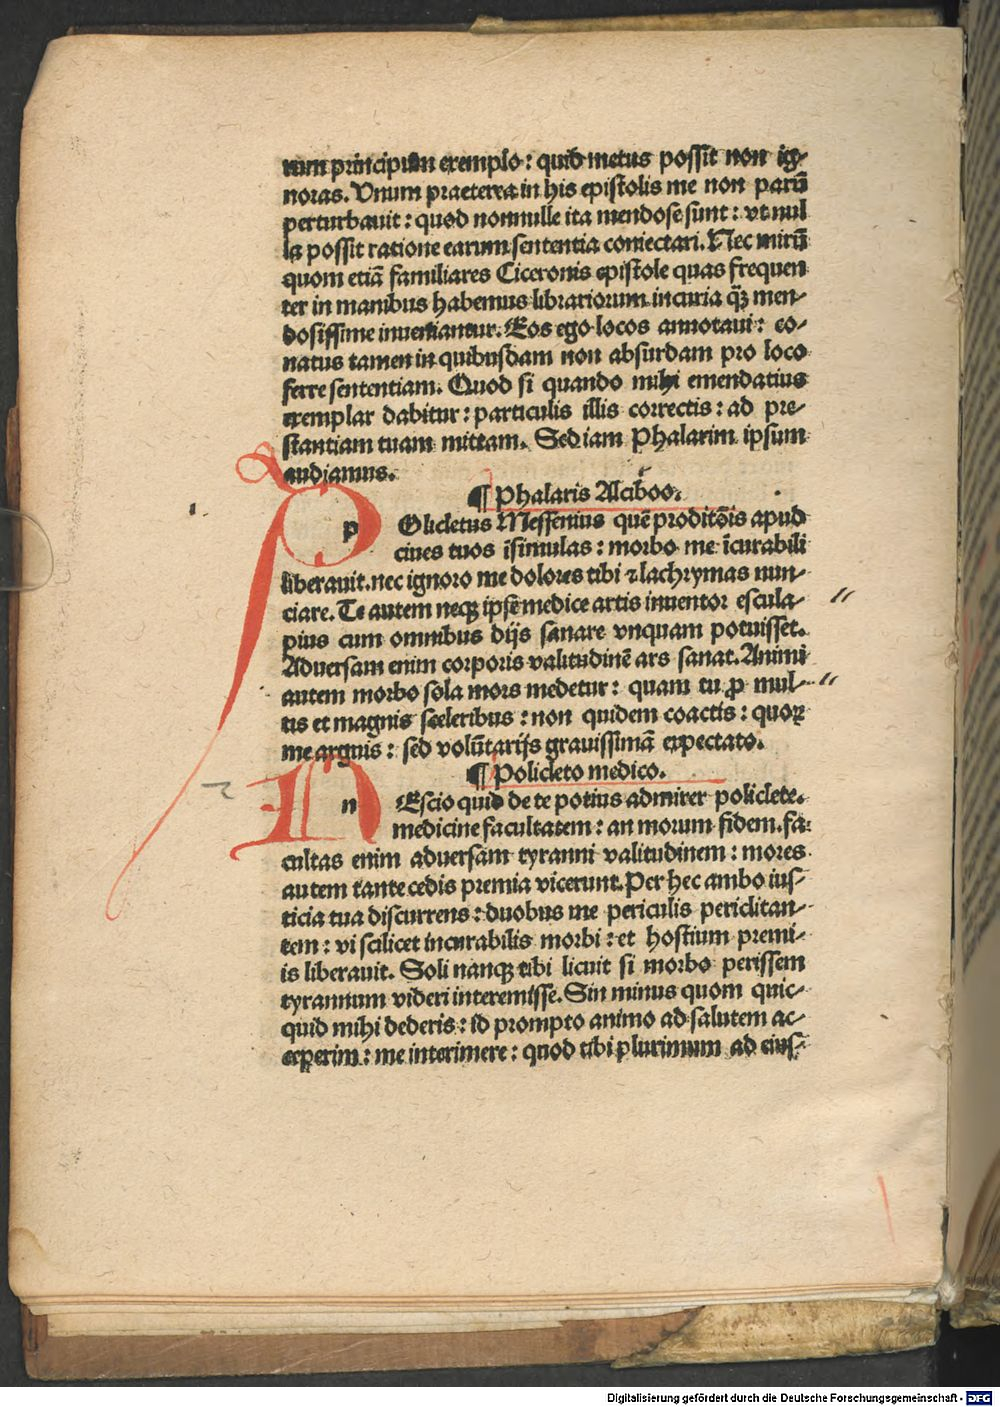 rum principum exemplo: quid metus possit non ig-
noras. Unum praeterea in his epistolis me non parū
perturbauit: quod nonnulle ita mendose sunt: vt nul
la possit ratione earum sententia coniectari. Nec mirū
quom etiā familiares Ciceronis epistole quas frequen
ter in manibus habemus librariorum incuria qʒ men-
dosissime inueniantur. Eos ego locos annotaui: co-
natus tamen in quibusdam non absurdam pro loco
ferre sententiam. Quod si quando mihi emendatius
exemplar dabitur: particulis illis correctis: ad pre-
stantiam tuam mittam. Sed iam Phalarim ipsum
audiamus.
¶ Phalaris Alciboo.
p Olicletus Messenius quē proditōis apud
ciues tuos īsimulas: morbo me īcurabili
liberauit. nec ignoro me dolores tibi ⁊ lachrymas nun-
ciare. Te autem neqʒ ipse medice artis inuentor escula-
pius cum omnibus dijs sanare vnquam potuisset.
Aduersam enim corporis valitudinē ars sanat. Animi
autem morbo sola mors medetur: quam tu ꝓ mul-
tis et magnis sceleribus: non quidem coactis: quoꝝ
me arguis: sed volūtarijs grauissimā expectato.
¶ Policleto medico.
n Escio quid de te potius admirer policlete.
medicine facultatem: an morum fidem. fa:
cultas enim aduersam tyranni valitudinem: mores
autem tante cedis premia vicerunt. Per hec ambo ius-
ticia tua discurrens: duobus me periculis periclitan-
tem: vi scilicet incurabilis morbi: et hostium premi-
is liberauit. Soli nanqʒ tibi licuit si morbo perissem
tyrannum videri interemisse. Sin minus quom quic-
quid mihi dederis: id prompto animo ad salutem ac-
ceperim: me interimere: quod tibi plurimum ad eius-
Digitalisierung gefördert durch die Deutsche Forschungsgemeinschaft - DFG